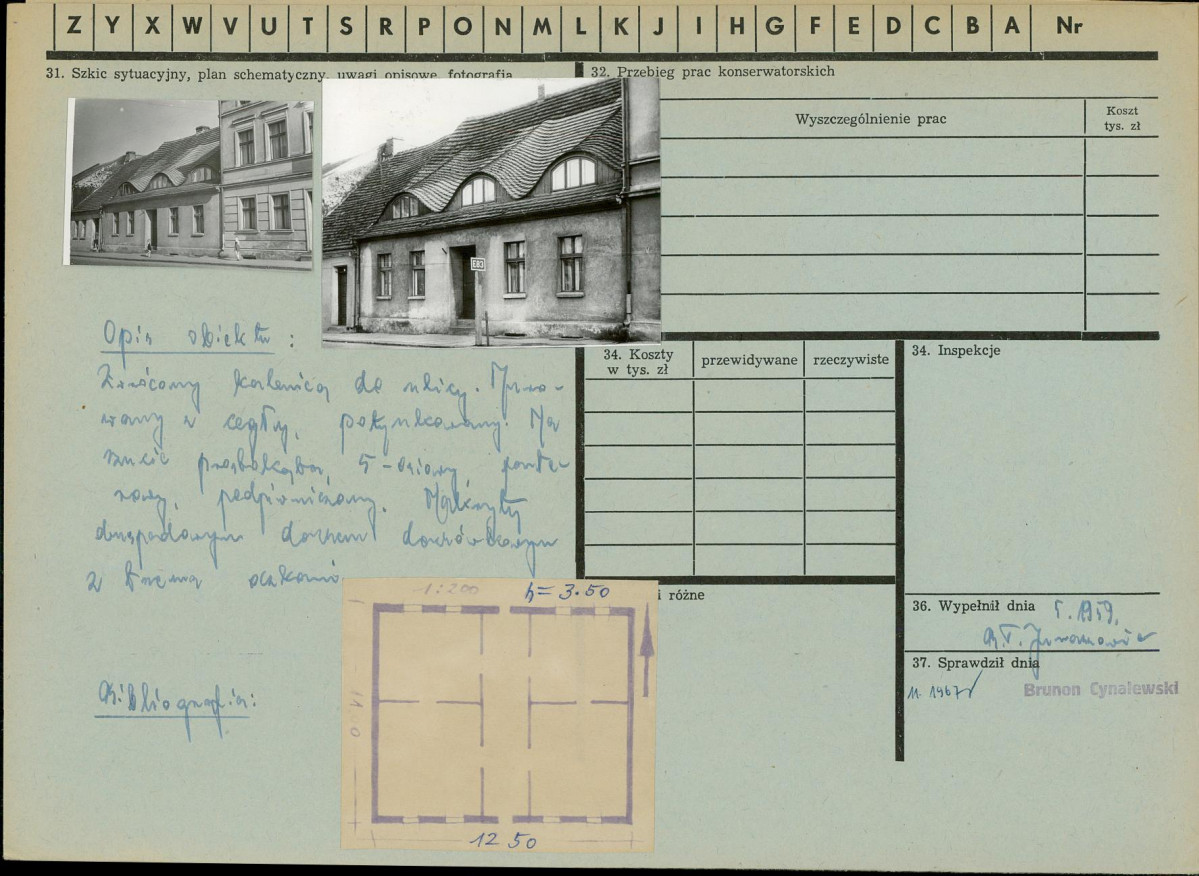 Z Y X W V U T S R P O N M L K J I H G F E D C B A Nr
31. Szkic sytuacyjny, plan schematyczny, uwagi opisowe, fotografia
32. Przebieg prac konserwatorskich
Wyszczególnienie prac
Koszt
tys. zł
E83
Opis obiektu :
Zwrócony kalenicą do ulicy. Muro-
wany z cegły, potynkowany. Na
rzucie prostokąta, 5-osiowy parte-
rowy, podpiwniczony. Nakryty
dwuspadowym dachem dachówkowym
z trzema
Bibliografia:
34. Koszty
w tys. zł
przewidywane
rzeczywiste
34. Inspekcje
i różne
36. Wypełnił dnia
1959.
37. Sprawdził dnia
11. 1967
Brunon Cynalewski
1:200
h=3.50
12 50